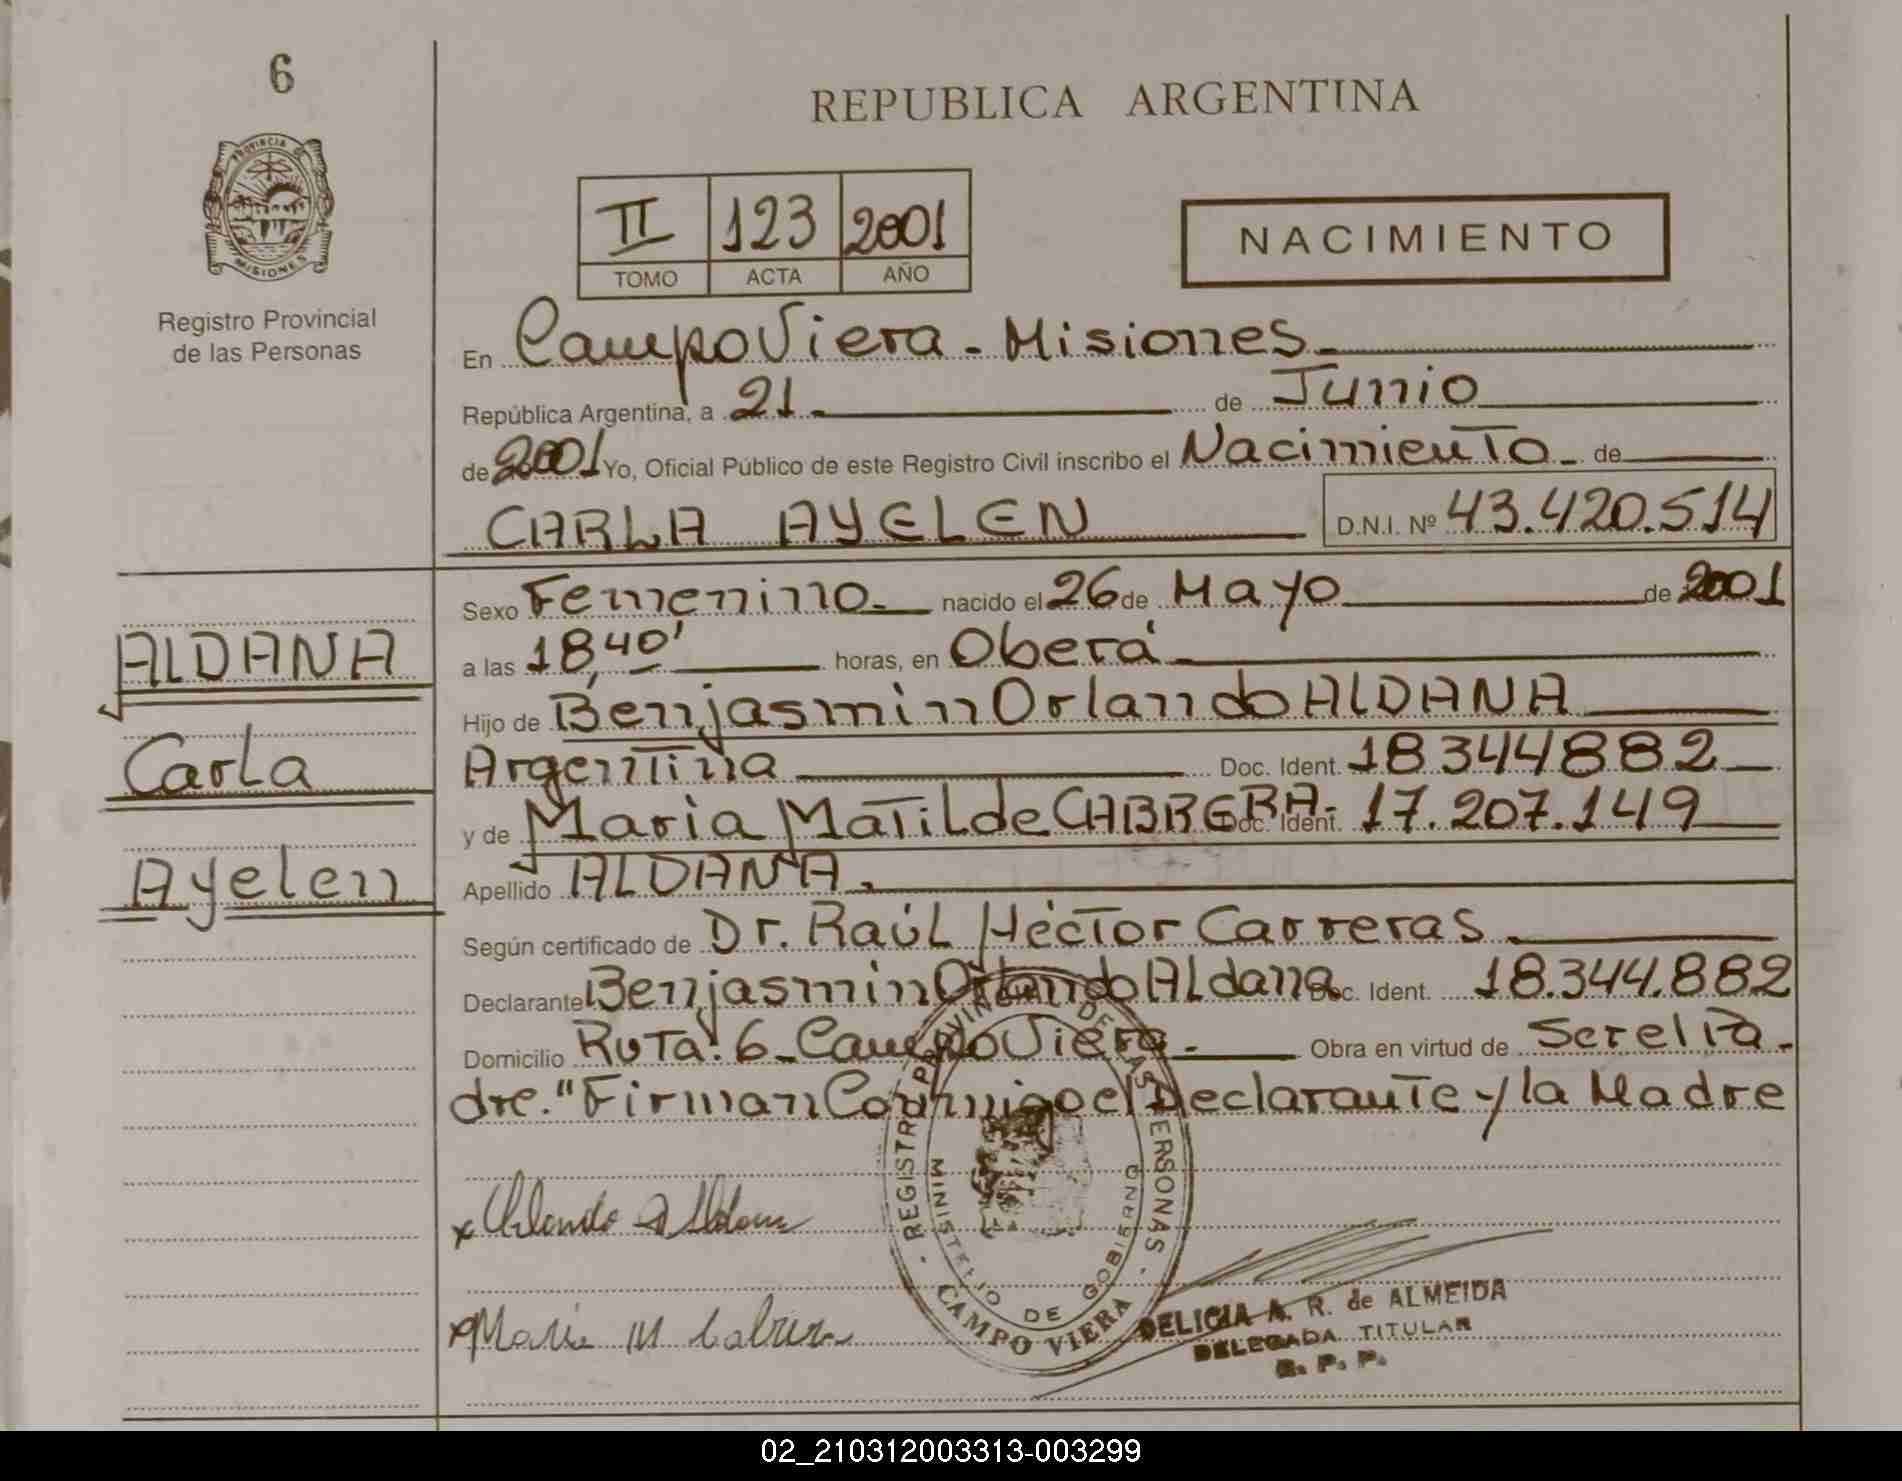 6
PROVINCIA DE
MISIONES
Registro Provincial
de las Personas
REPUBLICA ARGENTINA
II 123 2001
TOMO ACTA AÑO
NACIMIENTO
En Campo Viera - Misiones
República Argentina, a 21 de Junio
de 2001 Yo, Oficial Público de este Registro Civil inscribo el Nacimiento de
CARLA AYELEN D.N.I. Nº 43.420.514
Sexo Femenino nacido el 26 de Mayo de 2001
a las 18,40' horas, en Oberá
Hijo de Benjasmin Orlando ALDANA
Argentina Doc. Ident. 18344882
y de Maria Matilde CABRERA. Doc. Ident. 17.207.149
Apellido ALDANA.
Según certificado de Dr. Raúl Héctor Carreras
Declarante Benjasmin Orlando Aldana Doc. Ident. 18.344.882
Domicilio Ruta: 6 - Campo Viera - Obra en virtud de Ser el Pa-
dre." Firman Conmigo el Declarante y la Madre
ALDANA
Carla
Ayelen
x Orlando B Aldana
x Maria M Cabrera
REGISTRO PROVINCIAL DE LAS PERSONAS
MINISTERIO DE GOBIERNO
CAMPO VIERA
DELICIA A. R. de ALMEIDA
DELEGADA TITULAR
R. P. P.
02_210312003313-003299